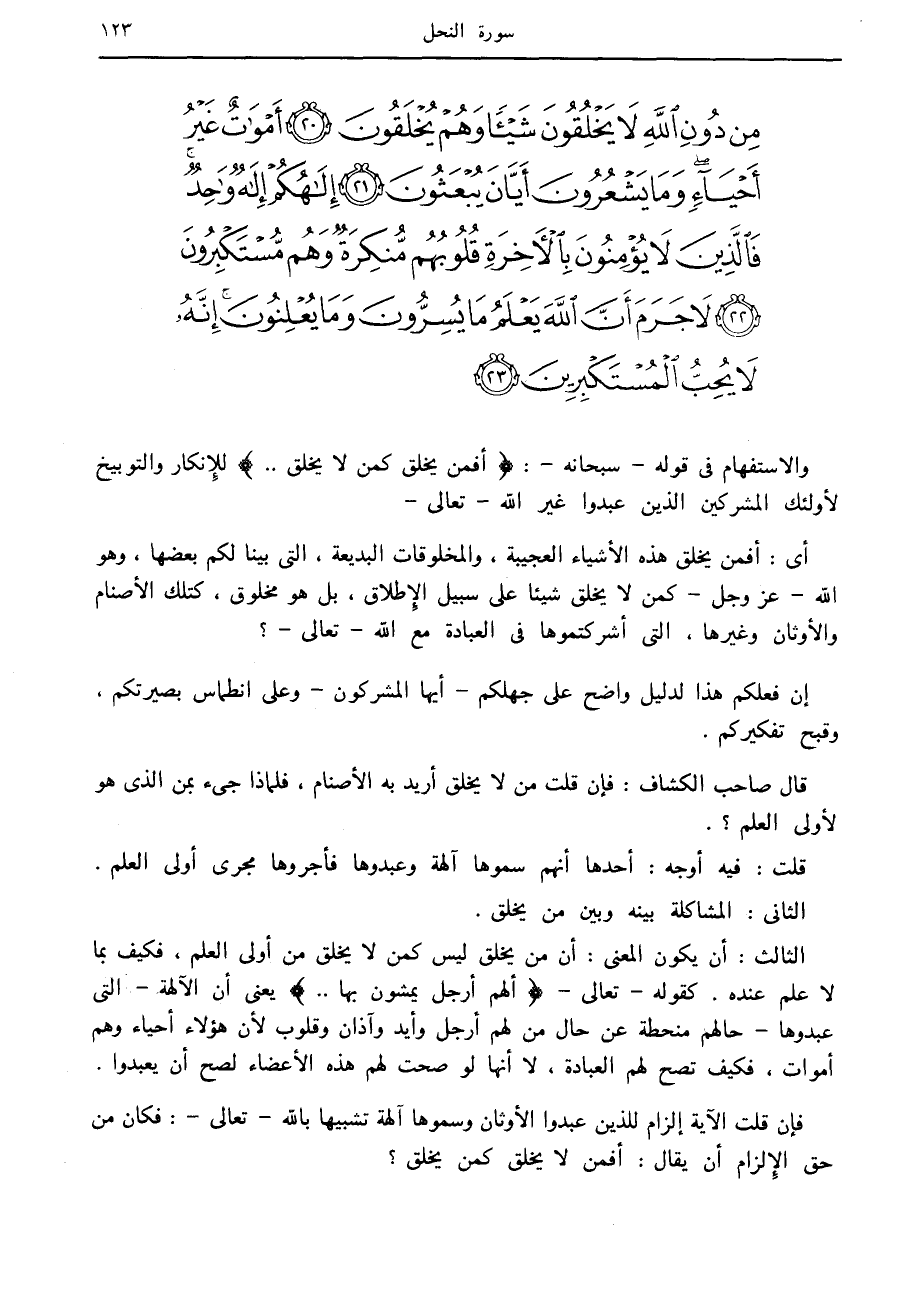 سورة النحل ١٢٣
مِن دُونِ ٱللَّهِ لَا يَخْلُقُونَ شَيْـًٔا وَهُمْ يُخْلَقُونَ ۝٢٠ أَمْوَٰتٌ غَيْرُ
أَحْيَآءٍ ۖ وَمَا يَشْعُرُونَ أَيَّانَ يُبْعَثُونَ ۝٢١ إِلَـٰهُكُمْ إِلَـٰهٌ وَٰحِدٌ ۚ
فَٱلَّذِينَ لَا يُؤْمِنُونَ بِٱلْـَٔاخِرَةِ قُلُوبُهُم مُّنكِرَةٌ وَهُم مُّسْتَكْبِرُونَ
۝٢٢ لَا جَرَمَ أَنَّ ٱللَّهَ يَعْلَمُ مَا يُسِرُّونَ وَمَا يُعْلِنُونَ ۚ إِنَّهُۥ
لَا يُحِبُّ ٱلْمُسْتَكْبِرِينَ ۝٢٣
والاستفهام فى قوله - سبحانه - : ﴿ أفمن يخلق كمن لا يخلق .. ﴾ للإنكار والتوبيخ
لأولئك المشركين الذين عبدوا غير الله - تعالى -
أى : أفمن يخلق هذه الأشياء العجيبة ، والمخلوقات البديعة ، التى بينا لكم بعضها ، وهو
الله - عز وجل - كمن لا يخلق شيئا على سبيل الإطلاق ، بل هو مخلوق ، كتلك الأصنام
والأوثان وغيرها ، التى أشركتموها فى العبادة مع الله - تعالى - ؟
إن فعلكم هذا لدليل واضح على جهلكم - أيها المشركون - وعلى انطماس بصيرتكم ،
وقبح تفكيركم .
قال صاحب الكشاف : فإن قلت من لا يخلق أريد به الأصنام ، فلماذا جىء بمن الذى هو
لأولى العلم ؟ .
قلت : فيه أوجه : أحدها أنهم سموها آلهة وعبدوها فأجروها مجرى أولى العلم .
الثانى : المشاكلة بينه وبين من يخلق .
الثالث : أن يكون المعنى : أن من يخلق ليس كمن لا يخلق من أولى العلم ، فكيف بما
لا علم عنده . كقوله - تعالى - ﴿ ألهم أرجل يمشون بها .. ﴾ يعنى أن الآلهة - التى
عبدوها - حالهم منحطة عن حال من لهم أرجل وأيد وآذان وقلوب لأن هؤلاء أحياء وهم
أموات ، فكيف تصح لهم العبادة ، لا أنها لو صحت لهم هذه الأعضاء لصح أن يعبدوا .
فإن قلت الآية إلزام للذين عبدوا الأوثان وسموها آلهة تشبيها بالله - تعالى - : فكان من
حق الإلزام أن يقال : أفمن لا يخلق كمن يخلق ؟